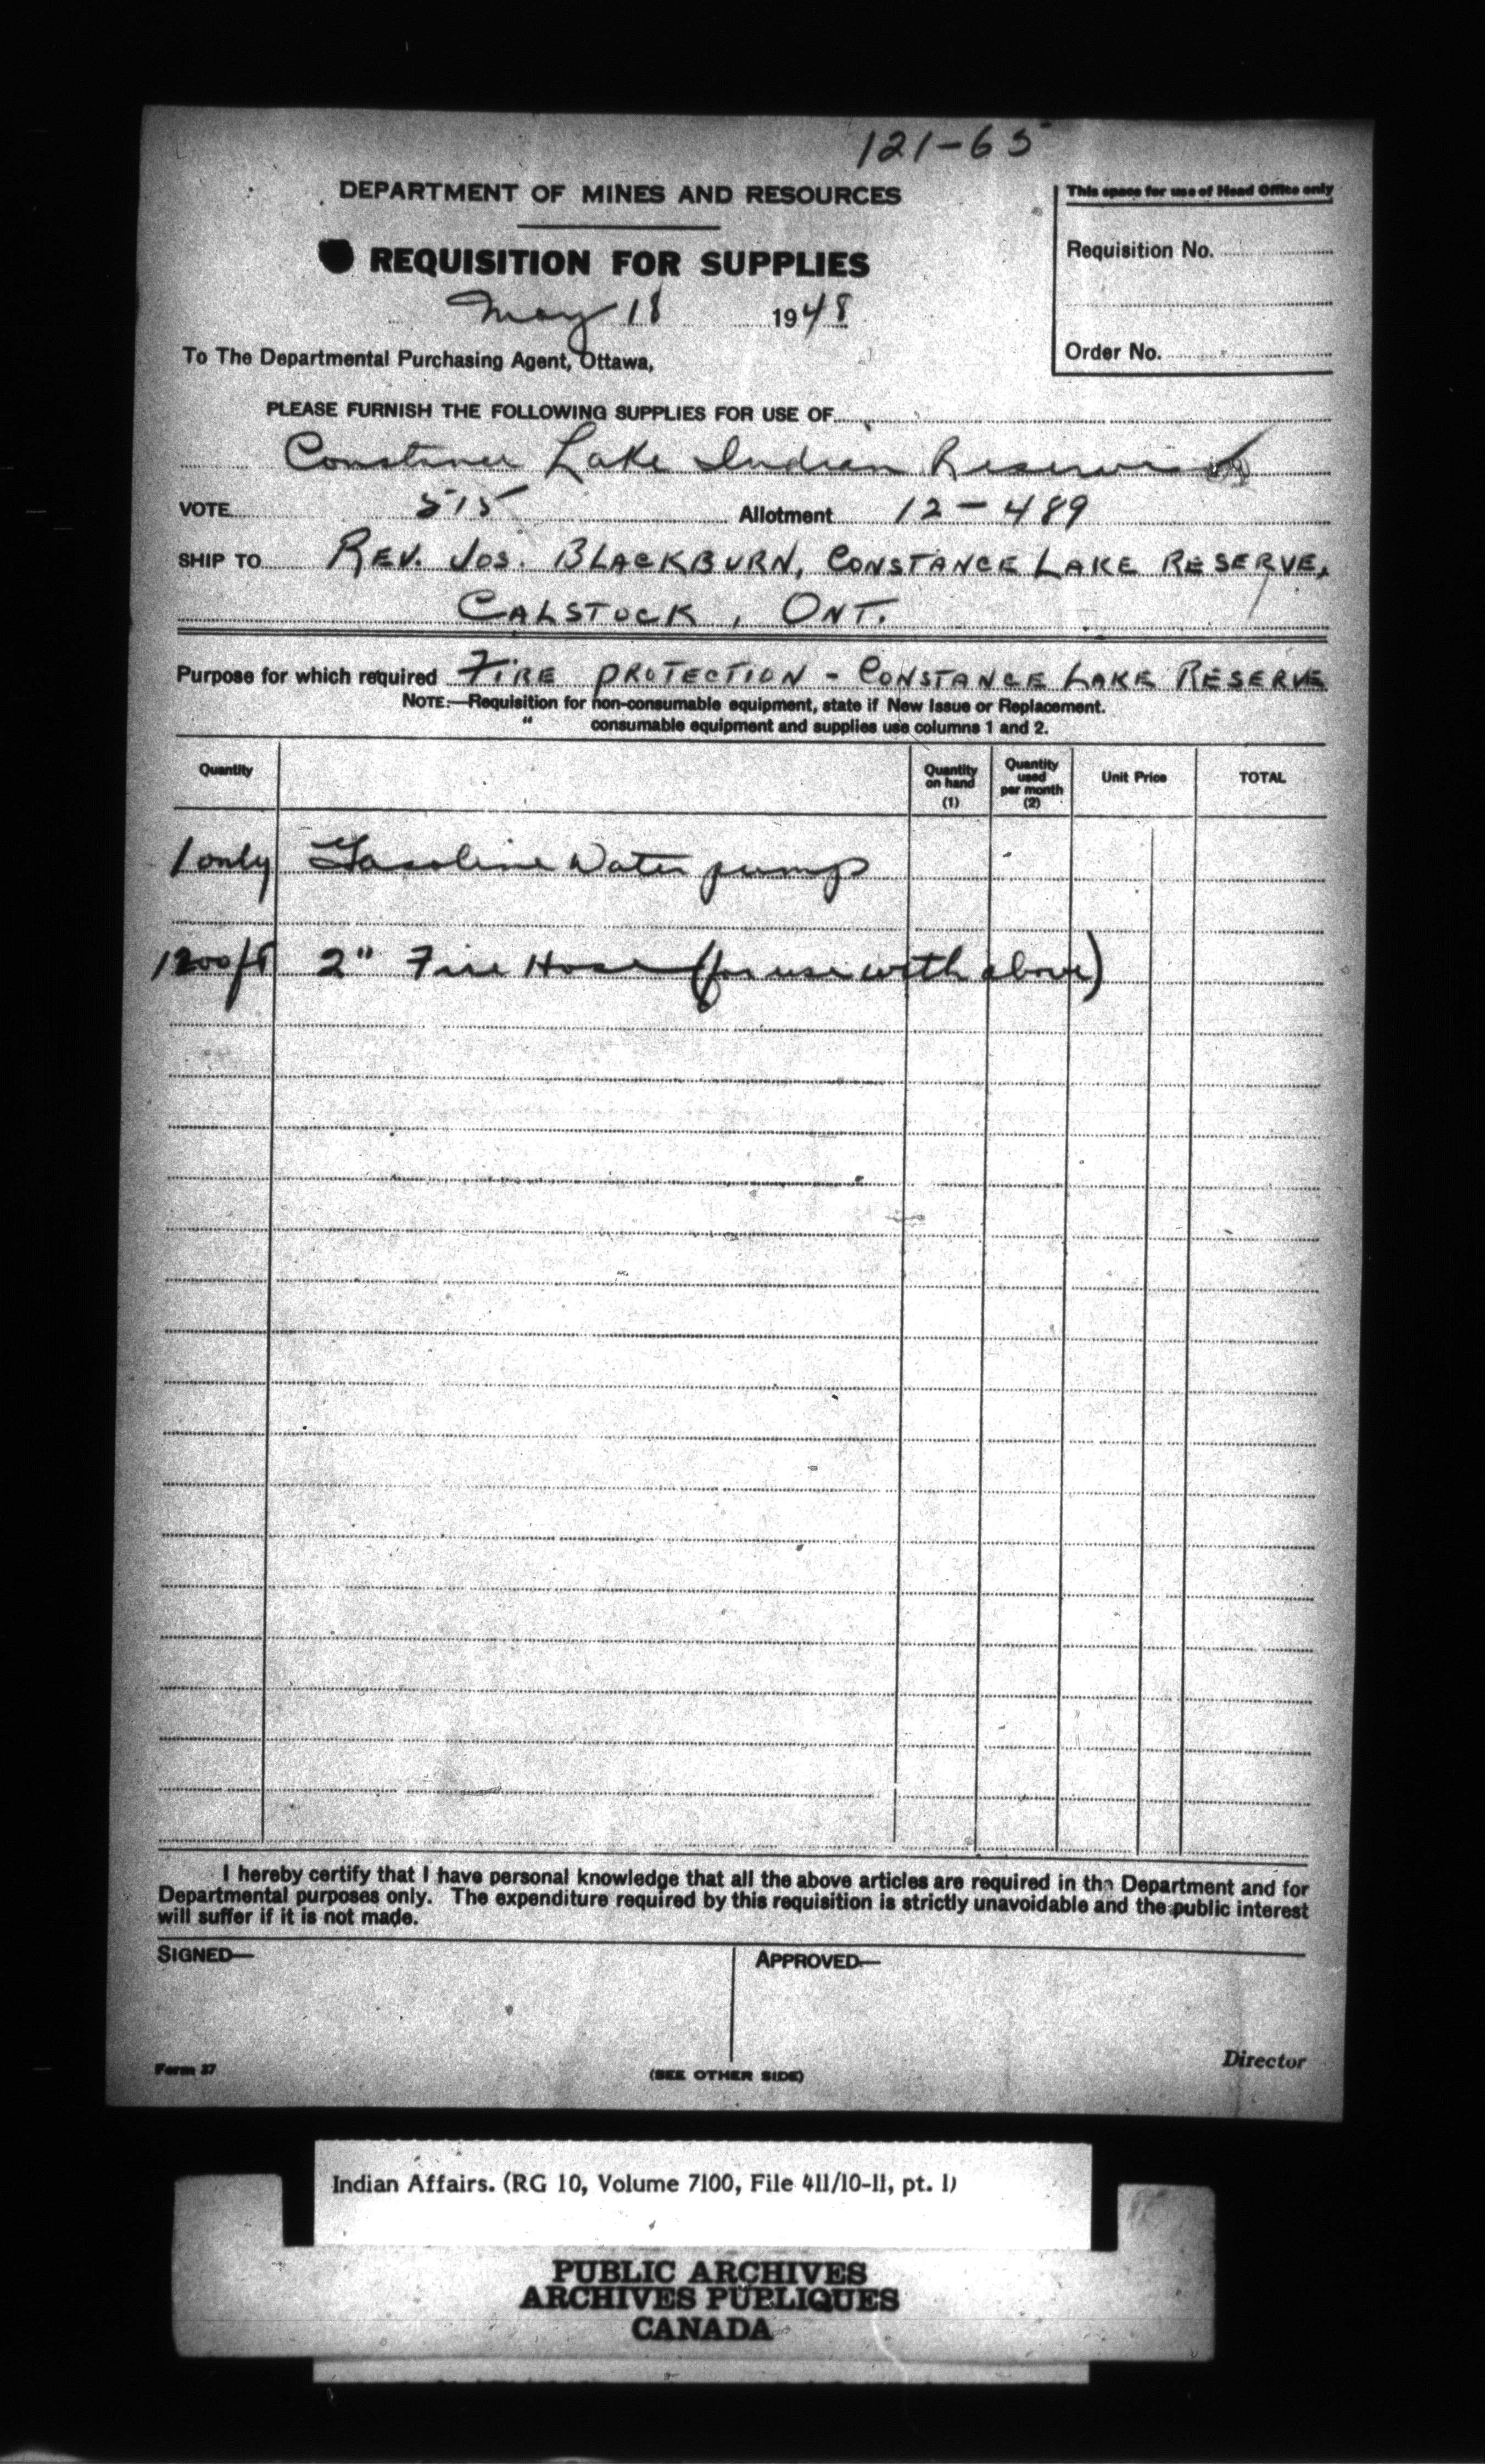 121-65
DEPARTMENT OF MINES AND RESOURCES
This space for use of Head Office only
REQUISITION FOR SUPPLIES
Requisition No.
May 18 1948
Order No.
To The Departmental Purchasing Agent, Ottawa,
PLEASE FURNISH THE FOLLOWING SUPPLIES FOR USE OF
Constance Lake Indian Reserve
VOTE 515 Allotment 12-489
SHIP TO REV. JOS. BLACKBURN, CONSTANCE LAKE RESERVE,
CALSTOCK, ONT.
Purpose for which required FIRE PROTECTION - CONSTANCE LAKE RESERVE
NOTE:—Requisition for non-consumable equipment, state if New Issue or Replacement.
" consumable equipment and supplies use columns 1 and 2.
Quantity Quantity on hand (1) Quantity used per month (2) Unit Price TOTAL
1 only Gasoline Water pump
1200 ft 2" Fire Hose (for use with above)
I hereby certify that I have personal knowledge that all the above articles are required in the Department and for
Departmental purposes only. The expenditure required by this requisition is strictly unavoidable and the public interest
will suffer if it is not made.
SIGNED— APPROVED—
Director
Form 37 (SEE OTHER SIDE)
Indian Affairs. (RG 10, Volume 7100, File 411/10-11, pt. 1)
PUBLIC ARCHIVES
ARCHIVES PUBLIQUES
CANADA